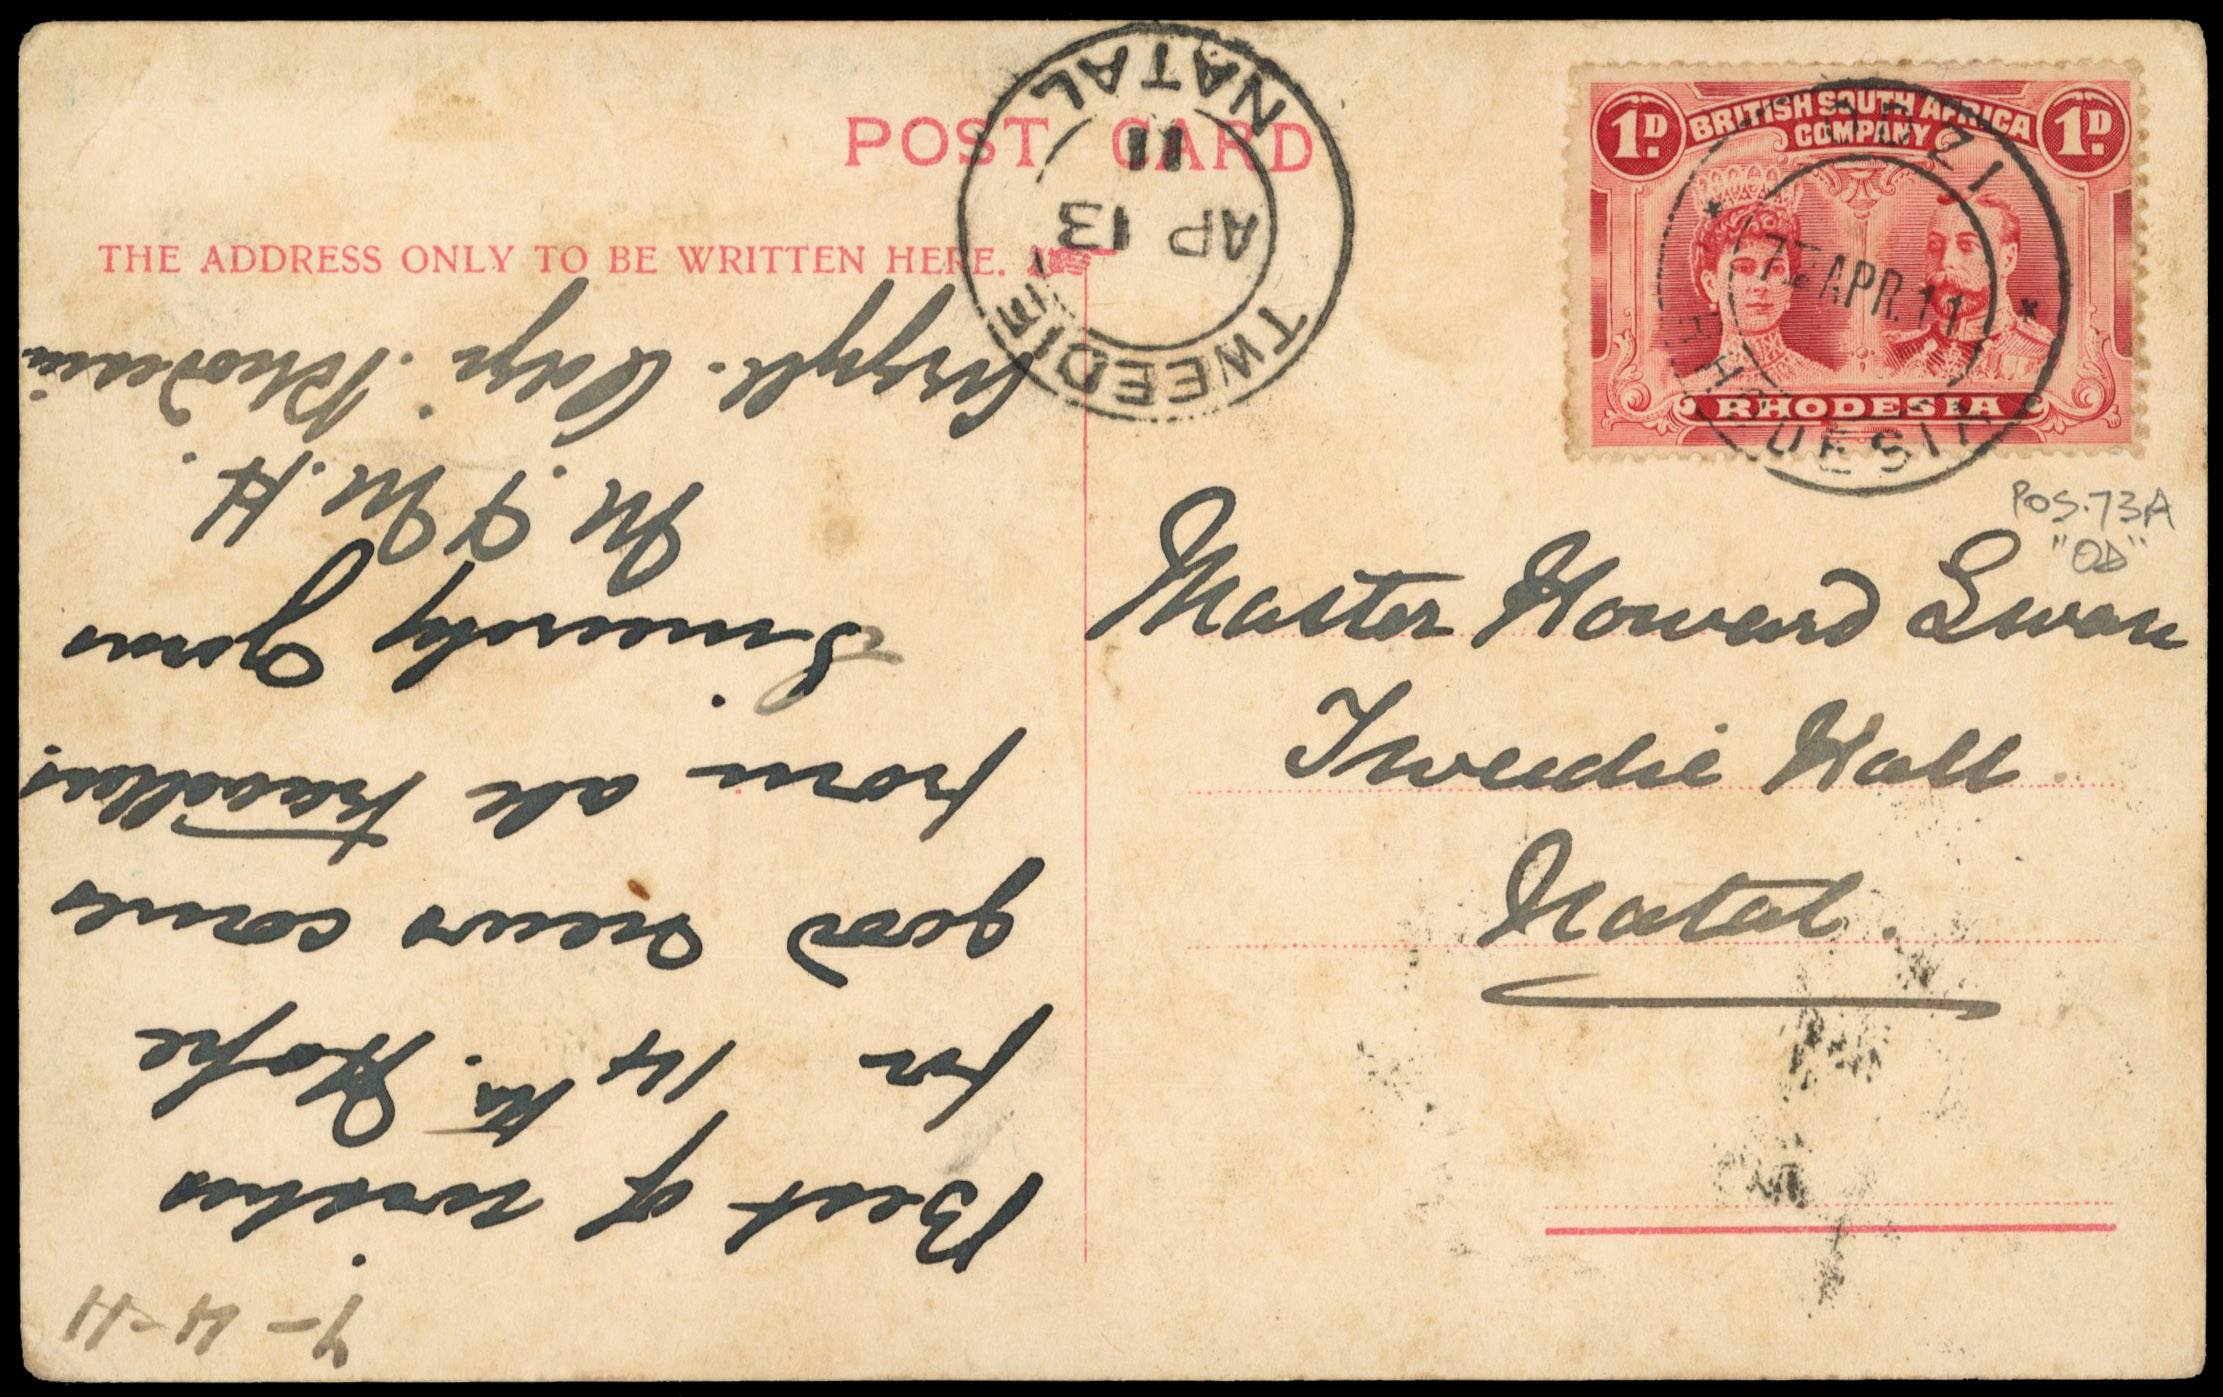 POST CARD
THE ADDRESS ONLY TO BE WRITTEN HERE.
TWEEDIE
NATAL
AP 13
11
1D. BRITISH SOUTH AFRICA 1D.
COMPANY
RHODESIA
ODZI
7 APR. 11
RHODESIA
POS. 73A
"OD"
Master Howard Swan
Tweedie Hall.
Natal.
7-4-11
Best of wishes
for 14th. Hope
good news comes
from all travellers.
Sincerely Yours
M. F. M. H.
Argyll. Odzi. Rhodesia